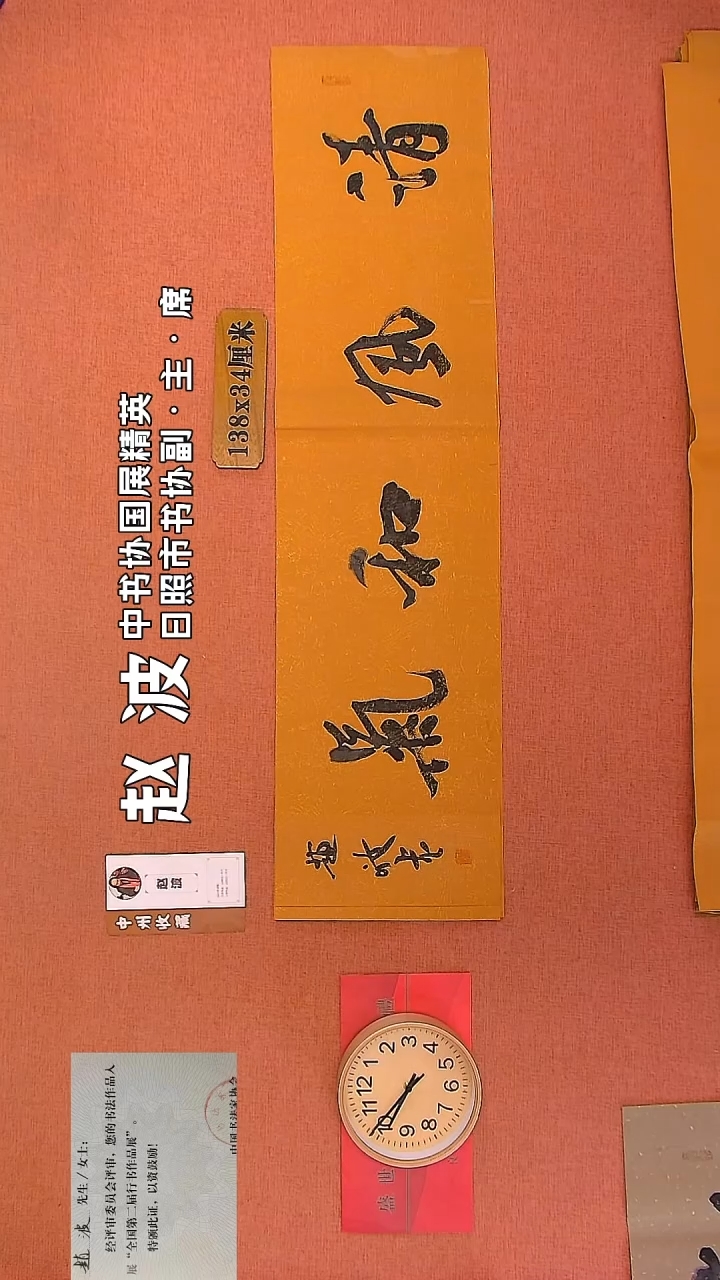 赵波
中书协国展精英
日照市书协副·主·席
138x34厘米
清风和氣
赵波书
赵波
中州收藏
赵波 先生/女士：
经评审委员会评审，您的书法作品入
展“全国第二届行书作品展”。
特颁此证，以资鼓励！
中国书法家协会
盛世
12
1
2
3
4
5
6
7
8
9
10
11